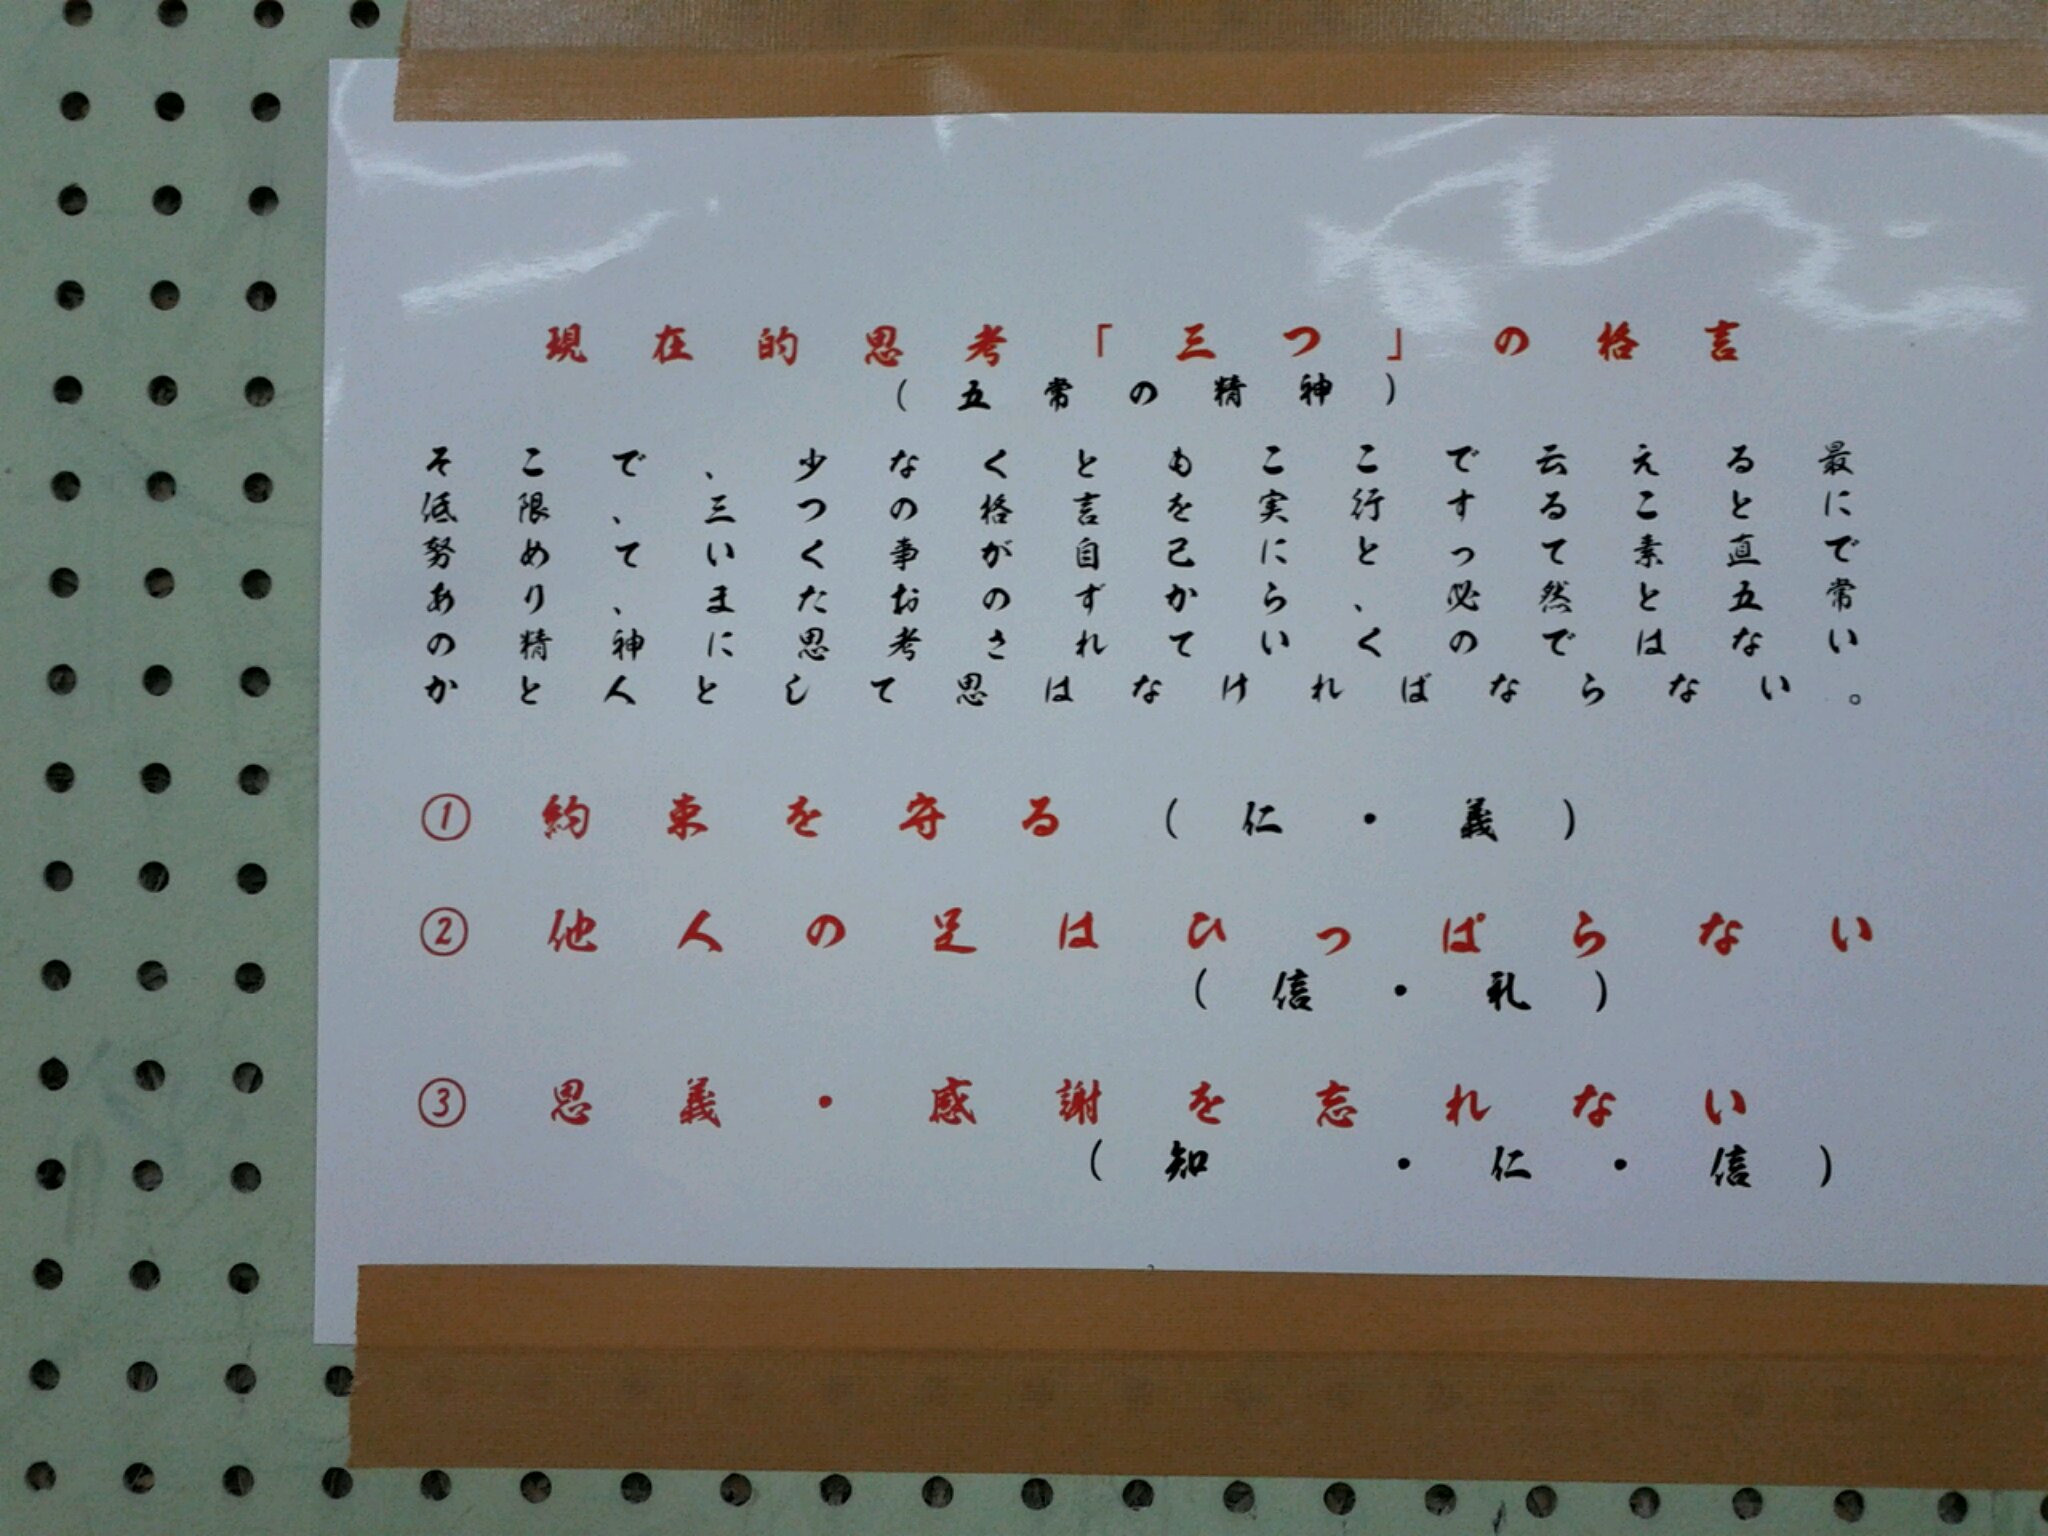 現在的思考「三つ」の格言
(五常の精神)
そこで、少なくともここで云える最
低限、三つの格言を実行すること に
努めていく事が自己にとって素直で
あり、またおのずから、必然と五常
の精神に思考されていくのではない
かと人として思はなければならない。
① 約束を守る(仁・義)
② 他人の足はひっぱらない
(信・礼)
③ 恩義・感謝を忘れない
(知 ・仁・信)